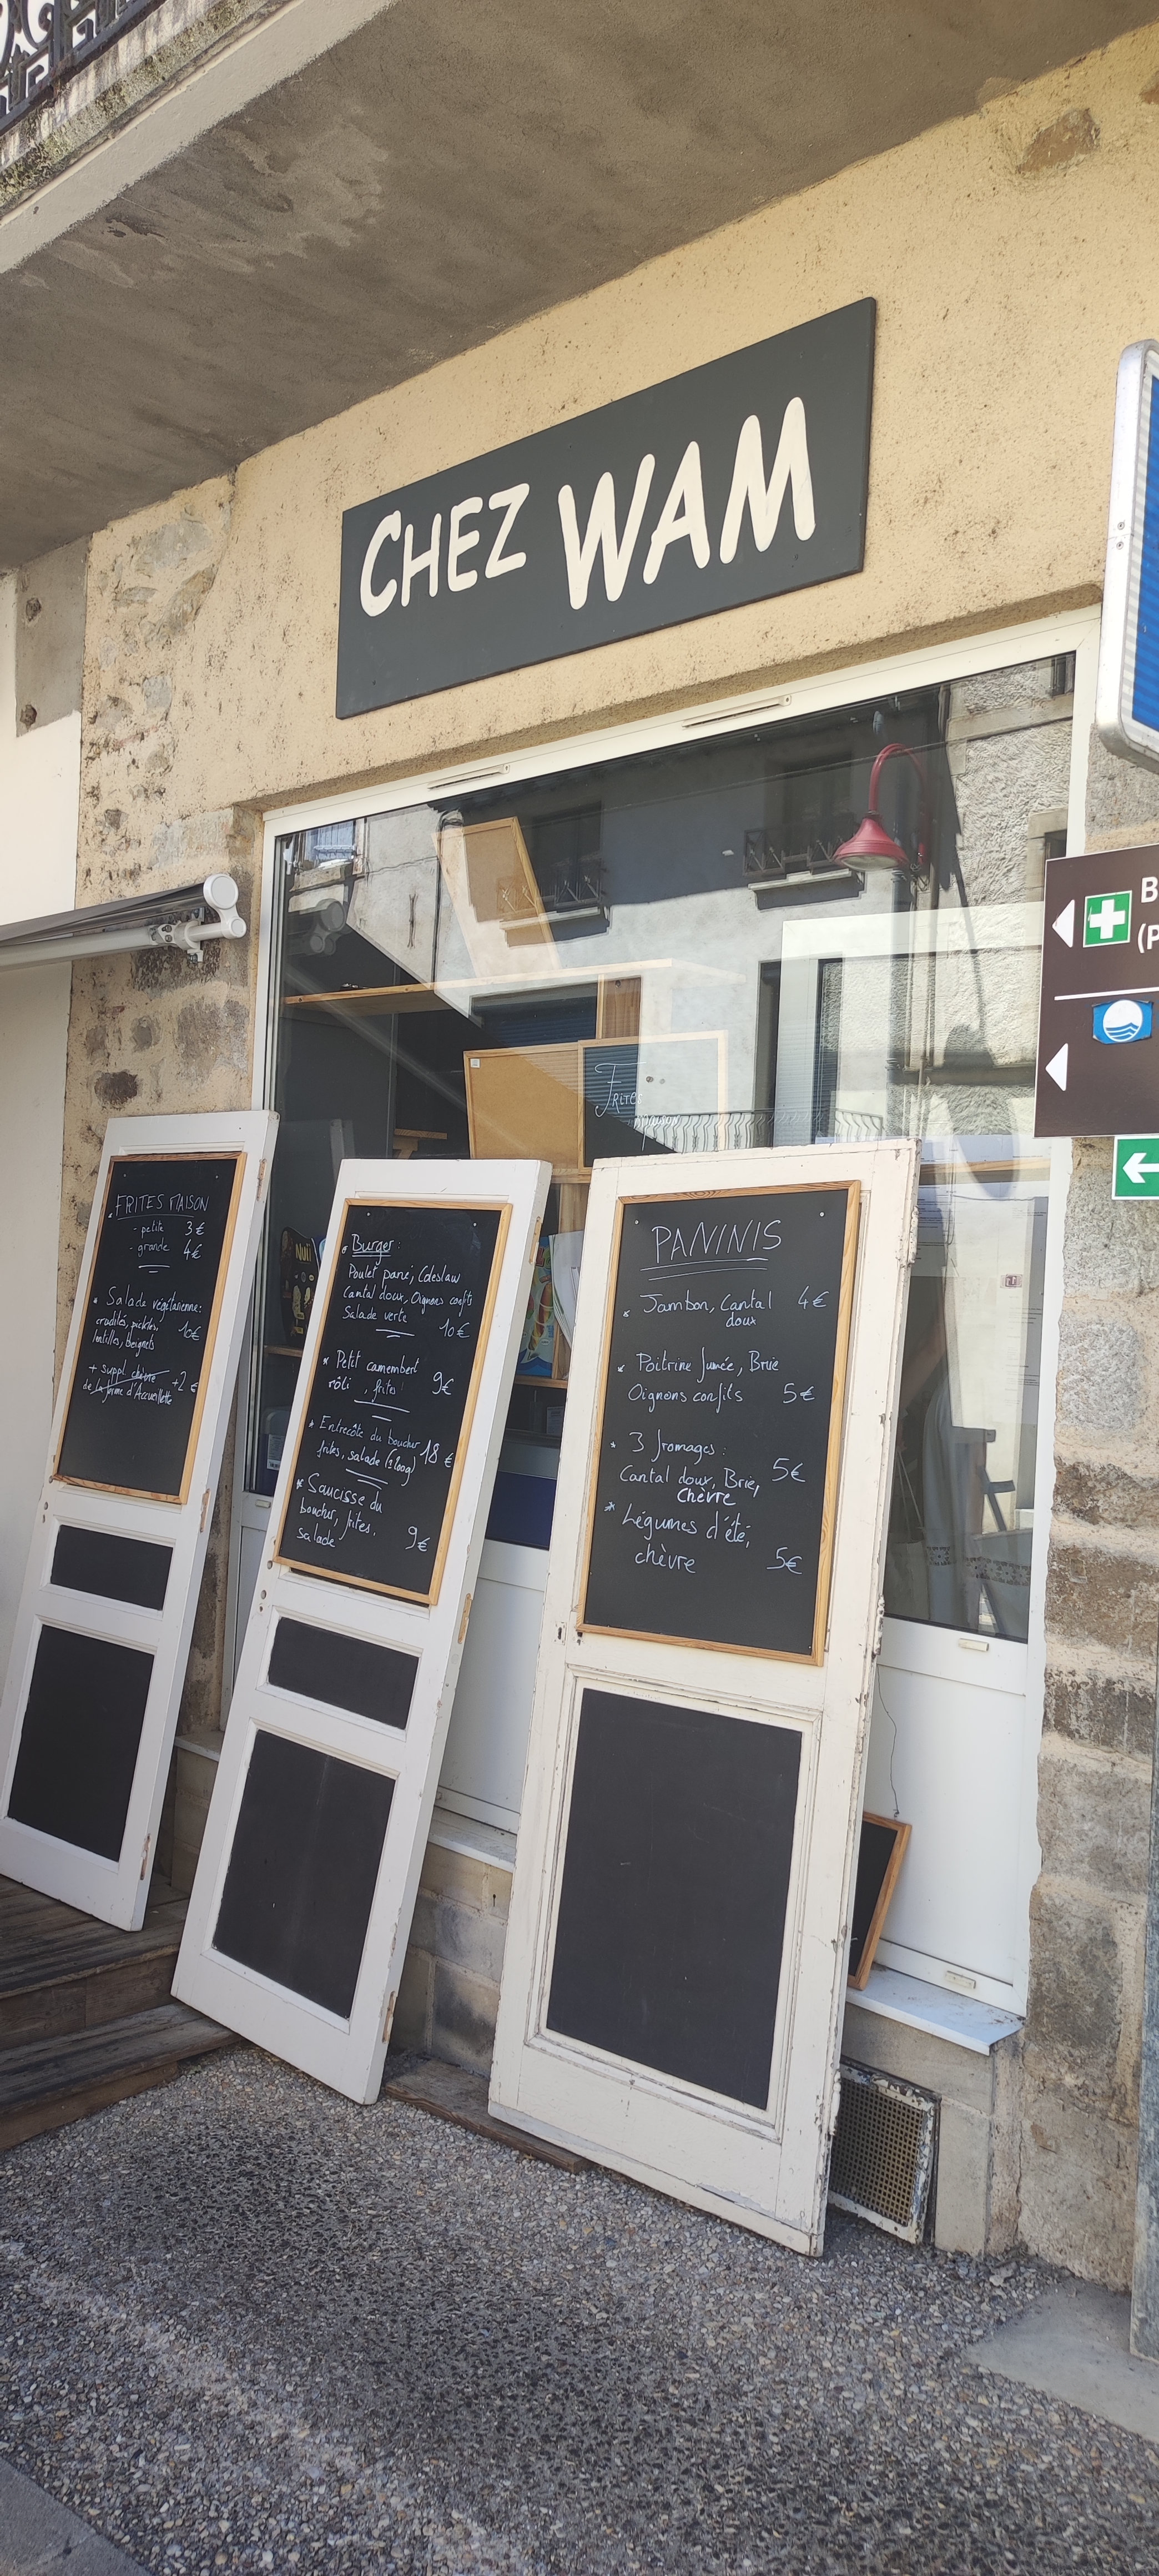 CHEZ WAM
B
(P
Frites
maison
Nuii
FRITES MAISON
- petite 3€
- grande 4€
* Salade végétarienne:
crudités, pickles,
lentilles, beignets 10€
+ suppl chèvre +2€
de la ferme d'Accueillette
* Burger:
Poulet pané, Coleslaw
Cantal doux, Oignons confits
Salade verte 10€
* Petit camembert
rôti, frites 9€
* Entrecôte du boucher 18€
frites, salade (±200g)
* Saucisse du
boucher, frites,
salade 9€
PANINIS
* Jambon, Cantal 4€
doux
* Poitrine fumée, Brie
Oignons confits 5€
* 3 fromages:
Cantal doux, Brie, 5€
Chèvre
* Légumes d'été,
chèvre 5€